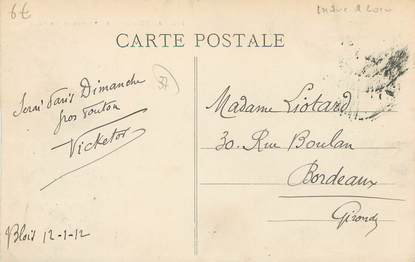 6€
Indre et Loire
CARTE POSTALE
37
Serai Paris Dimanche
gros Toutou
Vicketos
Blois 12-1-12
Madame Liotard
30. Rue Boulan
Bordeaux
Gironde